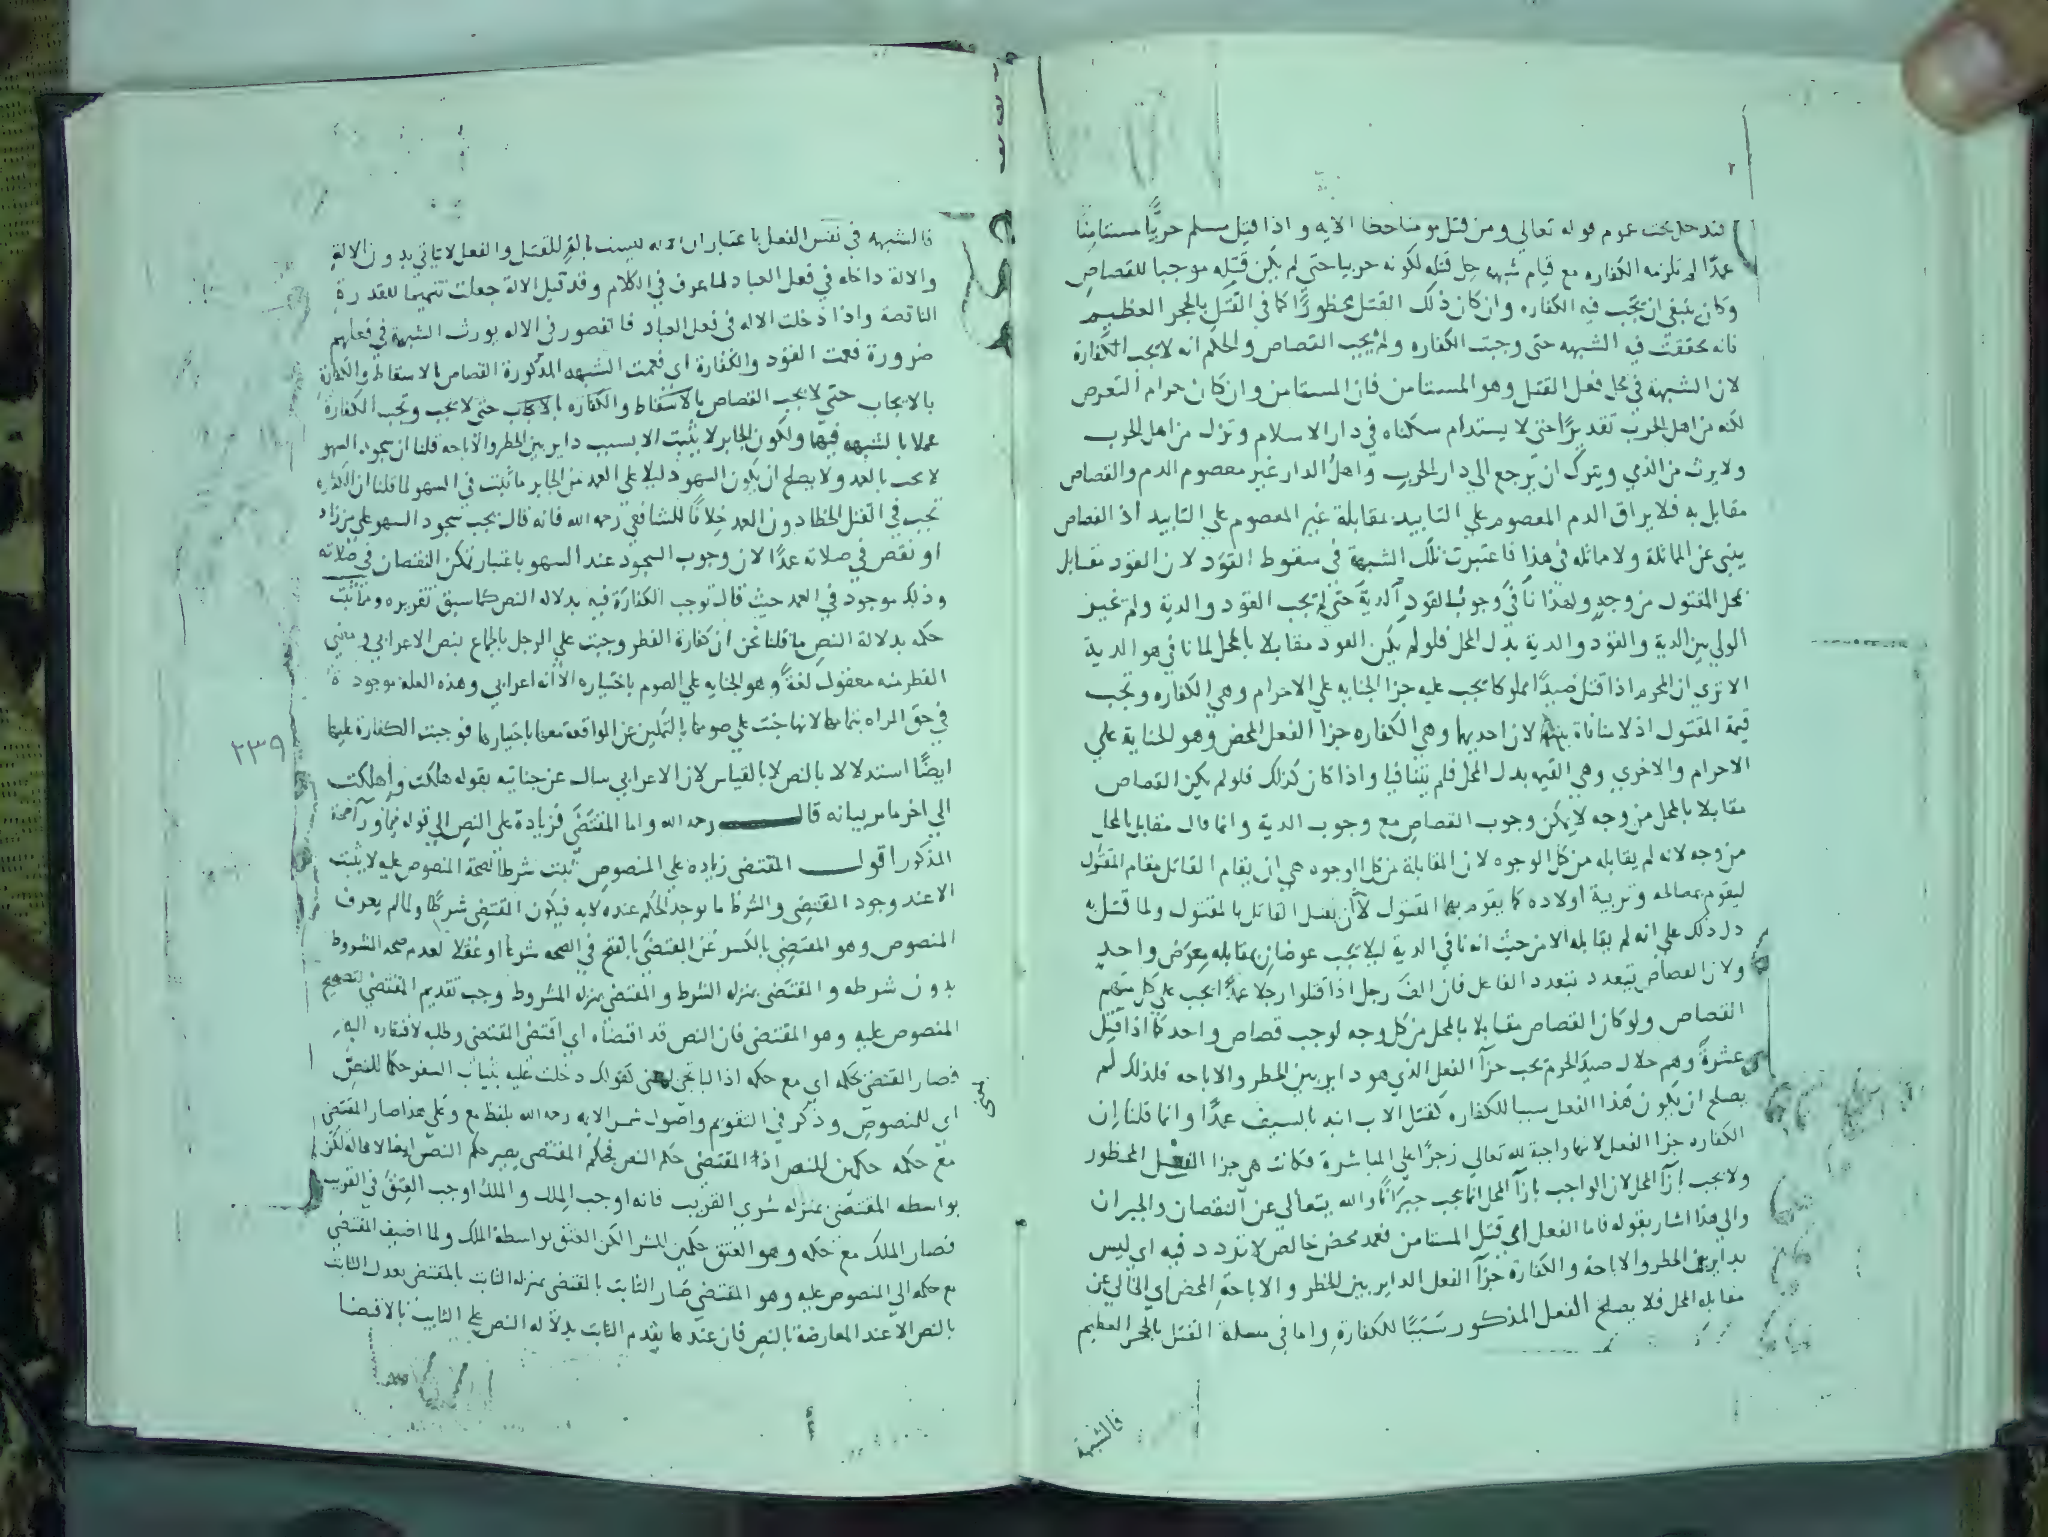 فتدخل تحت عموم قوله تعالي ومن قتل مومنا خطا الايه واذا قتل مسلم حربيًّا مستامنًا
عمدًا لم تلزمه الكفاره مع قيام شبهه حل قتله لكونه حربيا حتى لم يكن قتله موجبا للقصاص
وكان ينبغي ان تجب فيه الكفاره وان كان ذلك القتل محظورًا كما في القتل بالحجر العظيم
فانه تحققت فيه الشبهه حتى وجبت الكفاره ولم يجب القصاص والحكم انه لا يجب الكفارة
لان الشبهة في محل فعل القتل وهو المستامن فان المستامن وان كان حرام التعرض
لكنه من اهل الحرب تقديرًا حتى لا يستدام سكناه في دار الاسلام ونزل من اهل الحرب
ولا يرث من الذمي ويترك ان يرجع الي دار الحرب واهل الدار غير معصوم الدم والقصاص
مقابل به فلا يراق الدم المعصوم علي التابيد بمقابلة غير المعصوم علي التابيد اذ القصاص
ينبي عن المماثلة ولا مماثله في هذا فاعتبرت تلك الشبهة في سقوط القود لان القود مقابل
بمحل المقتول من وجه ولهذا نافى وجوب القود الدية حتى لم يجب القود والدية ولم تخير
الولي بين الدية والقود والدية بدل المحل فلو لم يكن القود مقابلا بالمحل لما نافي هو الدية
الا تري ان المحرم اذا قتل صيدًا مملوكا تجب عليه جزا الجنايه علي الاحرام وهي الكفاره وتجب
قيمة المقتول اذ لا منافاة بينهما لان احديهما وهي الكفاره جزا الفعل المحض وهو الجناية علي
الاحرام والاخري وهي القيمه بدل المحل فلم يتنافيا واذا كان كذلك فلو لم يكن القصاص
مقابلا بالمحل من وجه لا يمكن وجوب القصاص مع وجوب الدية وانما قال مقابل بالمحل
من وجه لانه لم يقابله من كل الوجوه لان المقابلة من كل الوجوه هي ان يقام القاتل مقام المقتول
ليقوم بمصالحه وتربية اولاده كما يقوم بها المقتول لا ان يقتل القاتل بالمقتول ولما قتل به
دل ذلك علي انه لم يقابله الا من حيث انه نافي الدية ليلا يجب عوضان بمقابله بعوض واحد
ولان القصاص يتعدد بتعدد الفاعل فان الف رجل اذا قتلوا رجلا عمدًا يجب علي كل منهم
القصاص ولو كان القصاص مقابلا بالمحل من كل وجه لوجب قصاص واحد كما اذا قتل
عشرة وهم حلال صيد الحرم يجب جزآ الفعل الذي هو داير بين الحظر والاباحه فلذلك لم
يصلح ان يكون هذا الفعل سببا للكفاره كقتل الاب ابنه بالسيف عمدًا وانما قلنا ان
الكفاره جزا الفعل لانها واجبة لله تعالي زجرًا علي المباشرة فكانت هي جزا الفعل المحظور
ولا يجب بازآ المحل لان الواجب بازآ المحل انما يجب جبرانًا والله يتعالي عن النقصان والجبران
والي هذا اشار بقوله فاما الفعل اي قتل المستامن فعمد محض خالص لا تردد فيه اي ليس
بداير بين الحظر والاباحة والكفارة جزآ الفعل الداير بين الحظر والاباحة المحض اي الخالي عن
مقابله المحل فلا يصلح الفعل المذكور سببًا للكفارة واما في مسلة القتل بالحجر العظيم
فالشبهة
فالشبهه في نفس الفعل باعتبار ان الاله ليست بالة للقتل والفعل لا يتاتي بدون الالة
والالة داخله في فعل العباد لما عرف في الكلام وقد قيل الالة جعلت تتميما للقدرة
الناقصة واذا دخلت الاله في فعل العباد فالقصور في الاله يورث الشبهة في فعلهم
ضرورة فعمت القود والكفارة اي فعمت الشبهه المذكورة القصاص الاسقاط والكفارة
بالايجاب حتى لا يجب القصاص بالاسقاط والكفاره بالايجاب حتى لا يجب وتجب الكفارة
عملا بالشبهه فيهما ولكون الجابر لا يثبت الا بسبب داير بين الحظر والاباحه قلنا ان سجود السهو
لا يجب بالعمد ولا يصلح ان يكون السهو دليلا علي العمد من الجابر ما ثبت في السهو لما قلنا ان الكفاره
تجب في القتل الخطا دون العمد خلافًا للشافعي رحمه الله فانه قال يجب سجود السهو علي من زاد
او نقص في صلاته عمدًا لان وجوب السجود عند السهو باعتبار تمكن النقصان في صلاته
وذلك موجود في العمد حيث قال توجب الكفارة فيه بدلاله النص كما سبق تقريره ومما ثبت
حكمه بدلالة النص ما قلنا نحن ان كفارة الفطر وجبت علي الرجل بالجماع بنص الاعرابي ومعني
الفطر منه معقول لغةً وهو الجنايه علي الصوم باختياره الا انه اعرابي وهذه العله موجودة
في حق المراه بتمامها لانها جنت علي صومها بالتمكين عن المواقعة معها باختيارها فوجبت الكفارة عليها
ايضًا استدلالا بالنص لا بالقياس لان الاعرابي سال عن جنايته بقوله هلكت واهلكت
الي اخر ما مر بيانه قال رحمه الله واما المقتضي فزيادة علي النص الي قوله
المذكور اقول المقتضى زياده علي المنصوص ثبت شرطًا لصحة المنصوص عليه لا يثبت
الا عند وجود المقتضى والشرط ما يوجد الحكم عنده لا به فيكون المقتضى شرطًا ولما لم يعرف
المنصوص وهو المقتضِي بالكسر عن المقتضَى بالفتح في الصحه شرعًا او عقلا لعدم صحه المشروط
بدون شرطه والمقتضى بمنزله الشرط والمقتضي بمنزله المشروط وجب تقديم المقتضى لتصحيح
المنصوص عليه وهو المقتضى فان النص قد اقتضاه اي اقتضى المقتضى وطلبه لافتقاره اليه
فصار المقتضى بحكمه اي مع حكمه اذ البا تجي لمعنى كقولك دخلت عليه بثياب السفر حكما للنص
اي للمنصوص وذكر في التقويم واصول شمس الايمه رحمه الله بلفظ مع وعلي هذا صار المقتضي
مع حكمه حكمين للنص اذ المقتضى حكم النص فحكم المقتضى يصير حكم النص ايضا لا محاله لكن
بواسطه المقتضى بمنزله شري القريب فانه اوجب الملك والملك اوجب العتق في القريب
فصار الملك مع حكمه وهو العتق حكمين للشرا لكن العتق بواسطة الملك ولما اضيف المقتضى
مع حكمه الي المنصوص عليه وهو المقتضي صار الثابت بالمقتضى بمنزله الثابت بالمقتضى بعدل الثابت
بالنص الا عند المعارضة بالنص فان عندها يقدم الثابت بدلاله النص علي الثابت بالاقتضا
٢٣٩